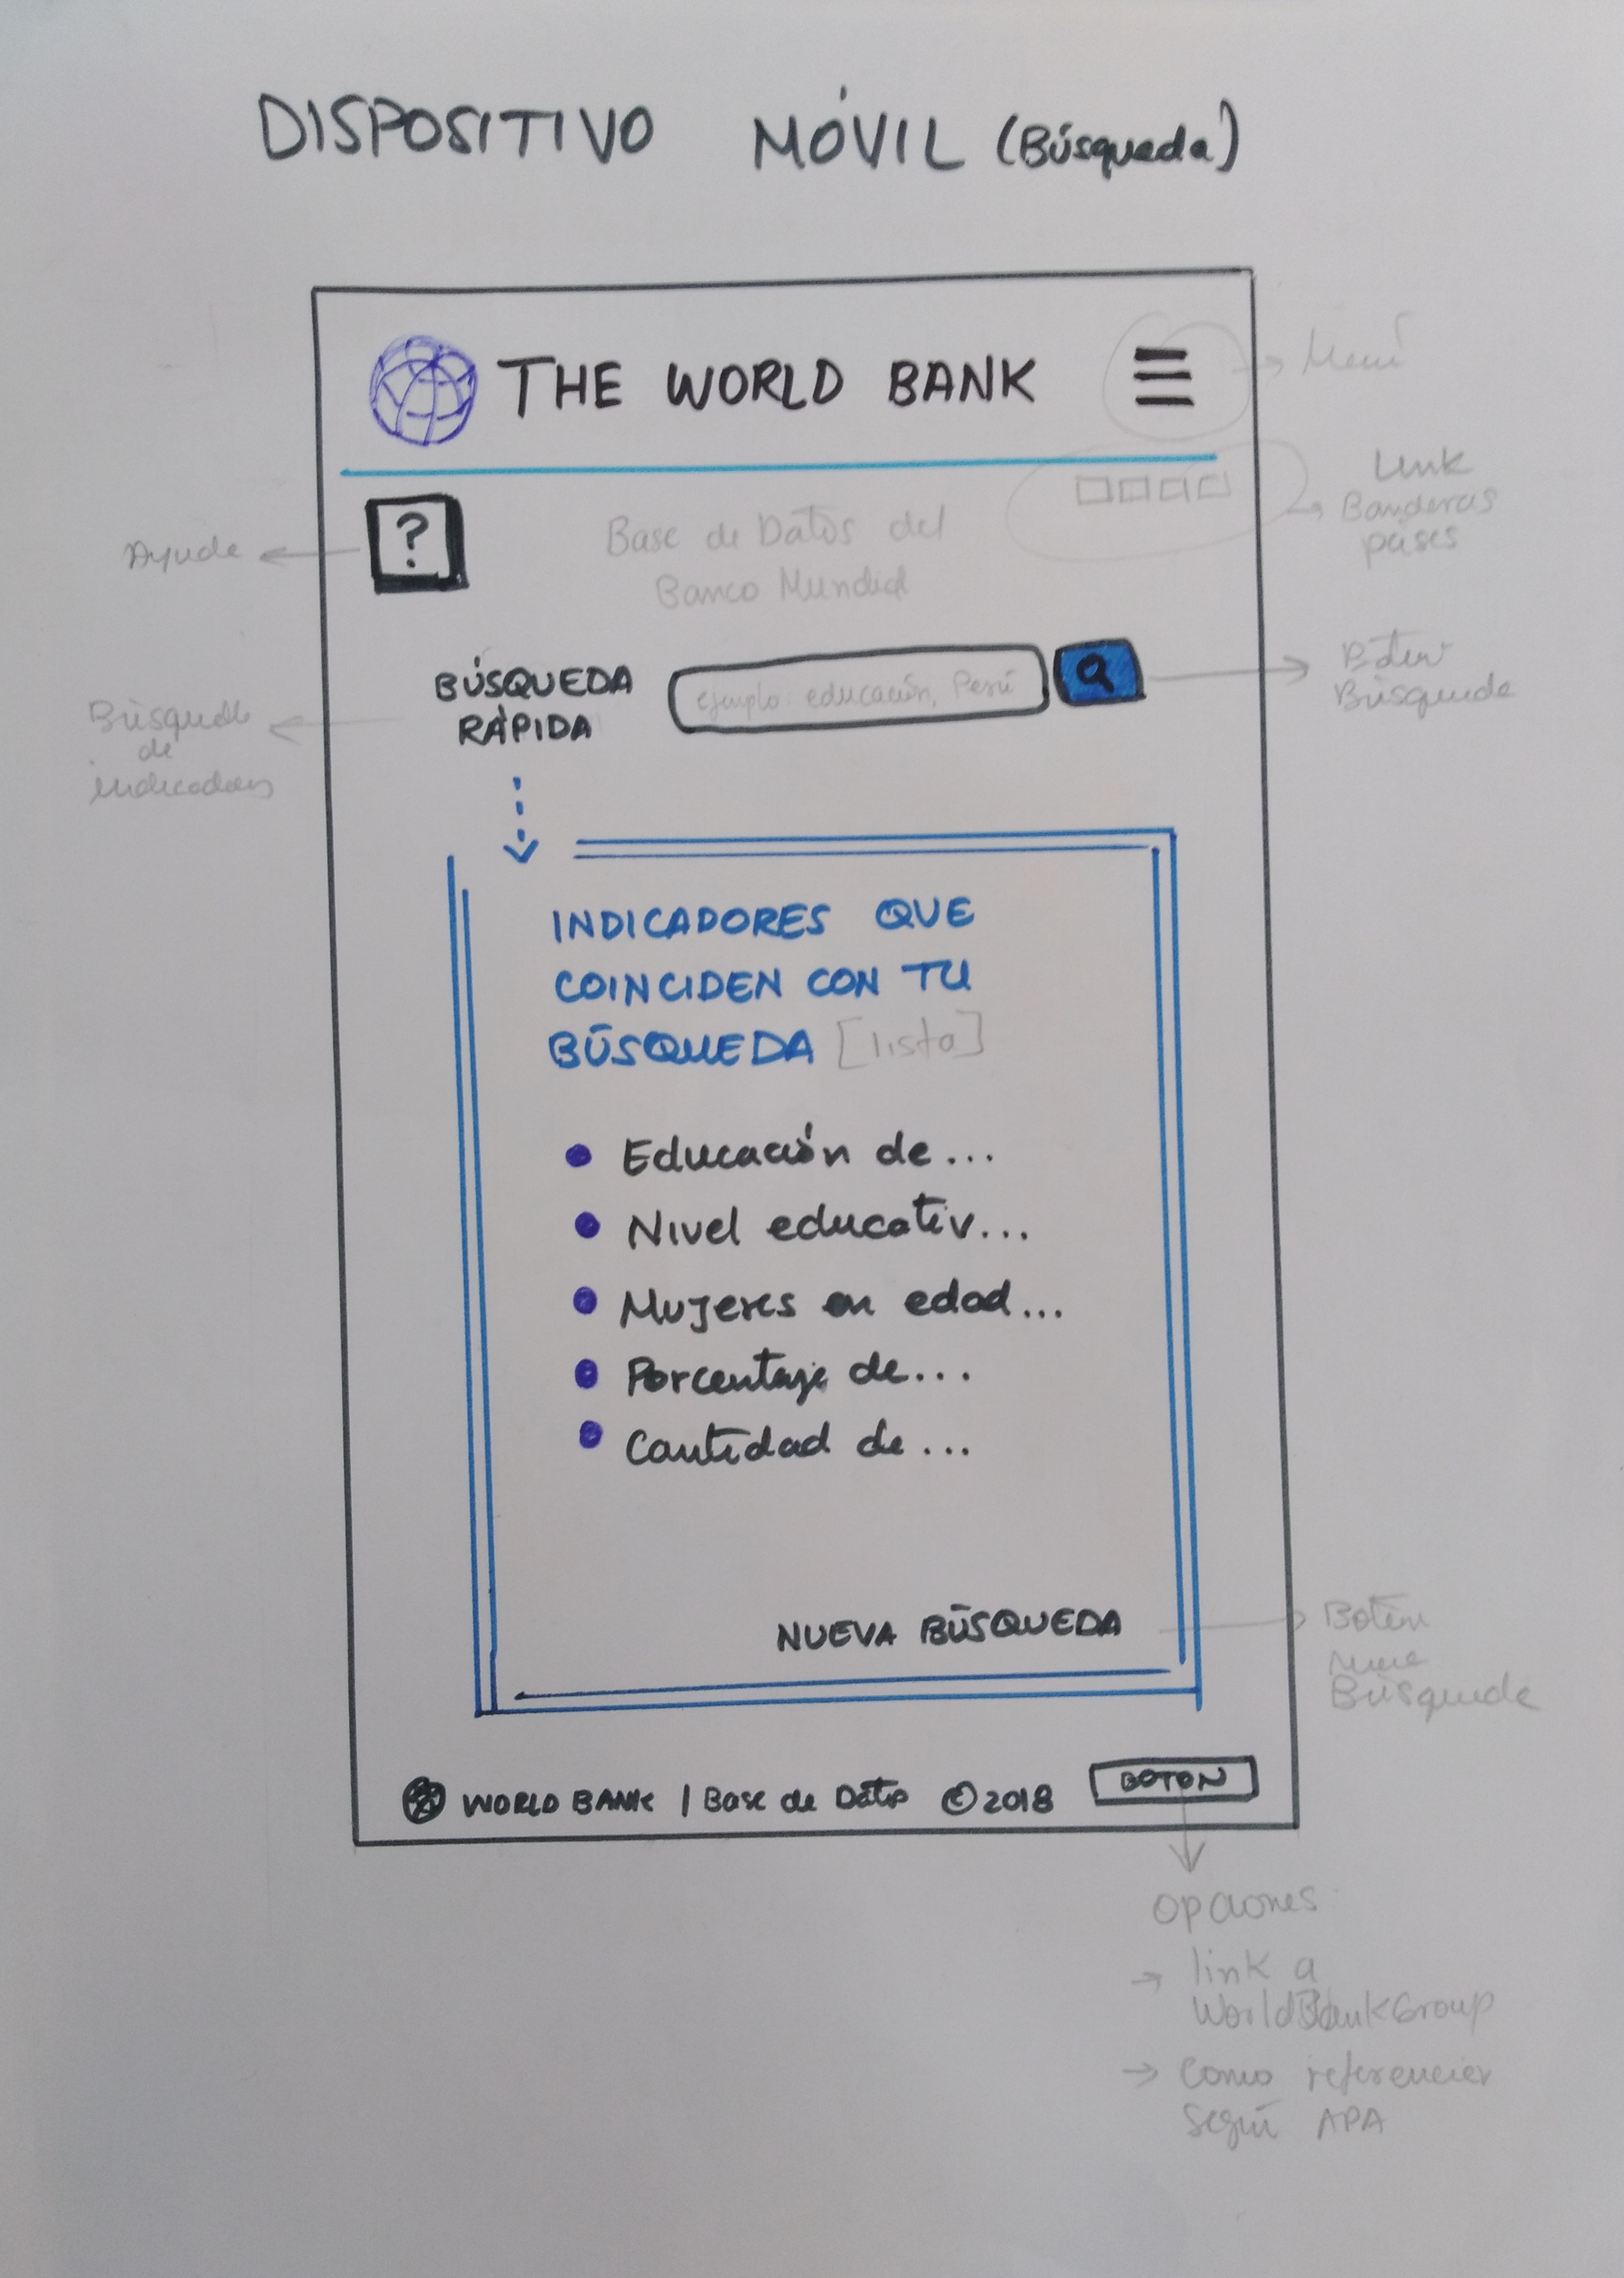 DISPOSITIVO MÓVIL (Búsqueda)
THE WORLD BANK
Menú
Link
Banderas
países
?
Ayuda
Base de Datos del
Banco Mundial
BÚSQUEDA
RÁPIDA
ejemplo: educación, Perú
Botón
Búsqueda
Búsqueda
de
indicadores
INDICADORES QUE
COINCIDEN CON TU
BÚSQUEDA [lista]
Educación de...
Nivel educativ...
Mujeres en edad...
Porcentaje de...
Cantidad de...
NUEVA BÚSQUEDA
Botón
nueva
Búsqueda
WORLD BANK | Base de Datos © 2018
BOTON
Opciones
→ link a
WorldBankGroup
→ Como referenciar
según APA